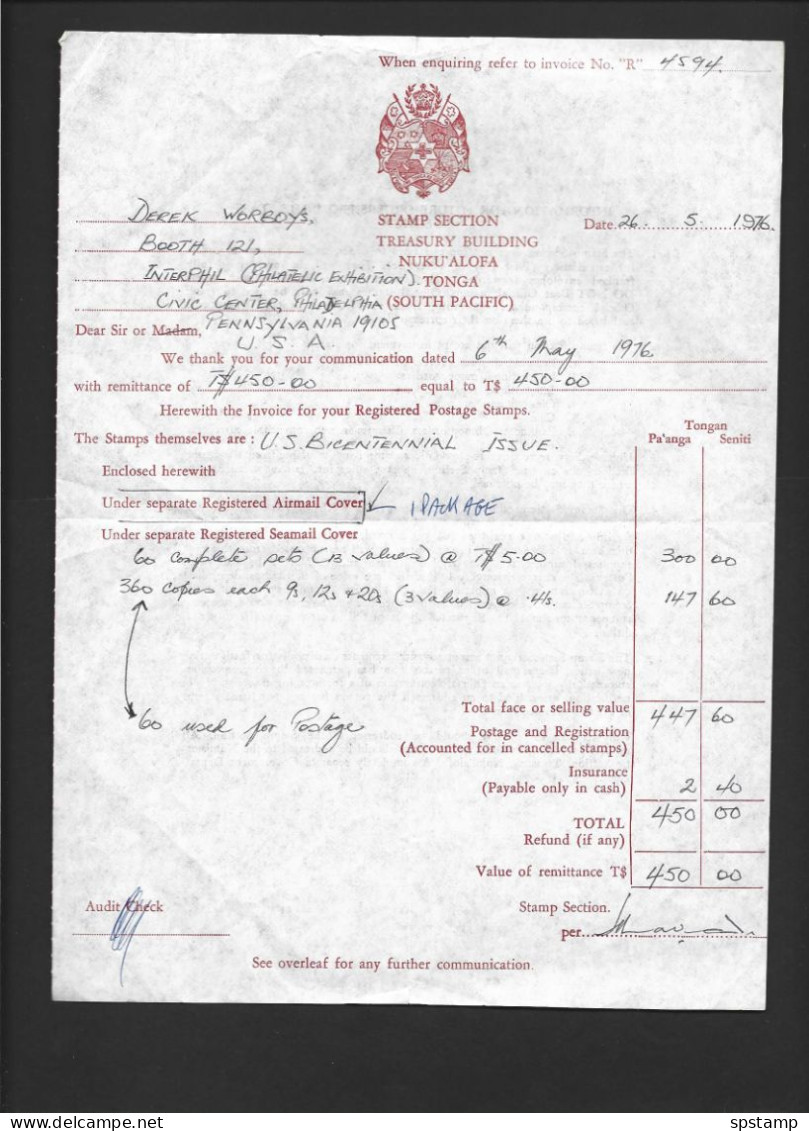 When enquiring refer to invoice No. "R" 4594.
DEREK WORBOYS,
BOOTH 121,
INTERPHIL (PHILATELIC EXHIBITION).
CIVIC CENTER, PHILADELPHIA
PENNSYLVANIA 19105
U.S.A.
STAMP SECTION
TREASURY BUILDING
NUKU'ALOFA
TONGA
(SOUTH PACIFIC)
Date 26. 5 1976.
Dear Sir or Madam,
We thank you for your communication dated 6th May 1976.
with remittance of T$450-00 equal to T$ 450-00
Herewith the Invoice for your Registered Postage Stamps.
The Stamps themselves are : U.S. BICENTENNIAL ISSUE.
Tongan
Pa'anga Seniti
Enclosed herewith
Under separate Registered Airmail Cover 1 PACKAGE
Under separate Registered Seamail Cover
60 complete sets (13 values) @ T$5.00 300 00
360 copies each 9s, 12s + 20s (3 values) @ .41s. 147 60
60 used for Postage
Total face or selling value 447 60
Postage and Registration
(Accounted for in cancelled stamps)
Insurance
(Payable only in cash) 2 40
TOTAL 450 00
Refund (if any)
Value of remittance T$ 450 00
Audit Check
Stamp Section.
per
See overleaf for any further communication.
spstamp